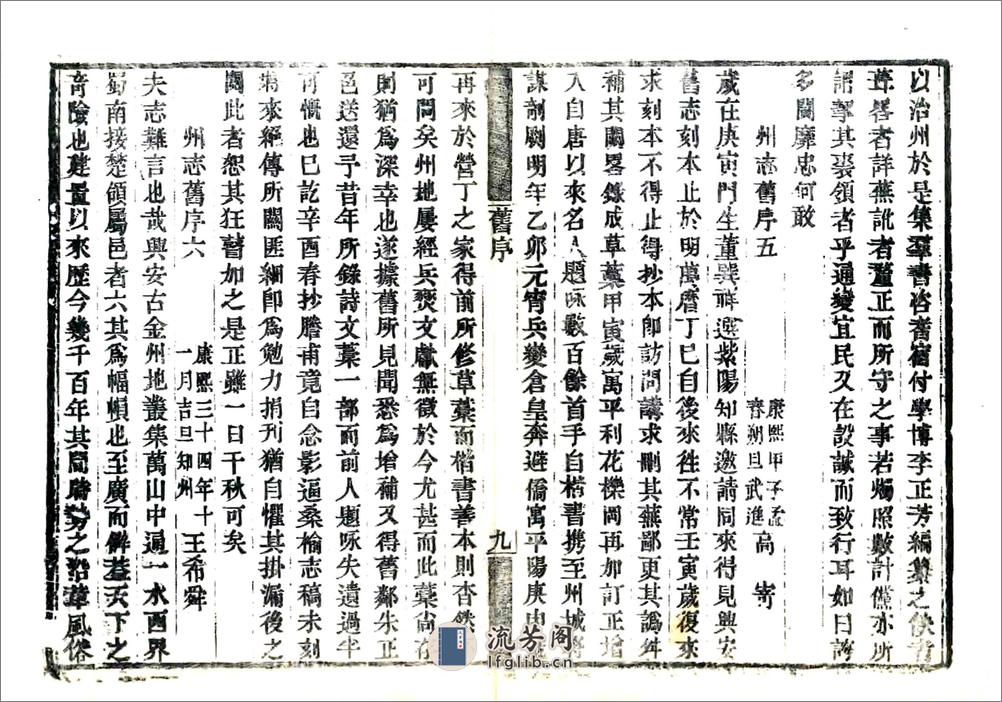 以治州於是集羣書咨耆宿付學博李正芳編纂之俠者
畧者詳蕪訛者釐正而所守之事若燭照數計僅亦所
謂挈其裘領者乎通變宜民又在設誠而致行耳如曰誇
多闘靡忠何敢
州志舊序五 康熙甲子孟春朔旦武進高寄
歲在庚寅門生董巽祥選紫陽知縣邀請同來得見興安
舊志刻本止於明萬曆丁巳自後來徃不常壬寅歲復來
求刻本不得止得抄本卽訪問講求刪其蕪鄙更其譌舛
補其闕畧錄成草藁甲寅歲寓平利花櫟岡再加訂正增
入自唐以來名人題咏數百餘首手自楷書携至州城將
謀剞劂明年乙卯元宵兵變倉皇奔避僑寓平陽庚申
再來於營丁之家得前所修草藁而楷書善本則杳然
可問矣州地屢經兵燹文獻無徵於今尤甚而此藁尚存
則猶爲深幸也遂據舊所見聞悉爲增補又得舊鄰朱正
邑送還予昔年所錄詩文藁一部而前人題咏失遺過半
可慨也已訖辛酉春抄膽甫竟自念影逼桑榆志稿未刻
將來絕傳所關匪細卽爲勉力捐刊猶自懼其掛漏後之
閱此者恕其狂瞽如之是正雖一日千秋可矣
州志舊序六 康熙三十四年十一月吉旦知州王希舜
夫志難言也哉興安古金州地叢集萬山中通一水西界
蜀南接楚領屬邑者六其爲幅幀也至廣而僻葢天下之
奇險也建置以來歷今幾千百年其間時势之沿革風俗
舊序
九
流芳阁
lfglib.cn